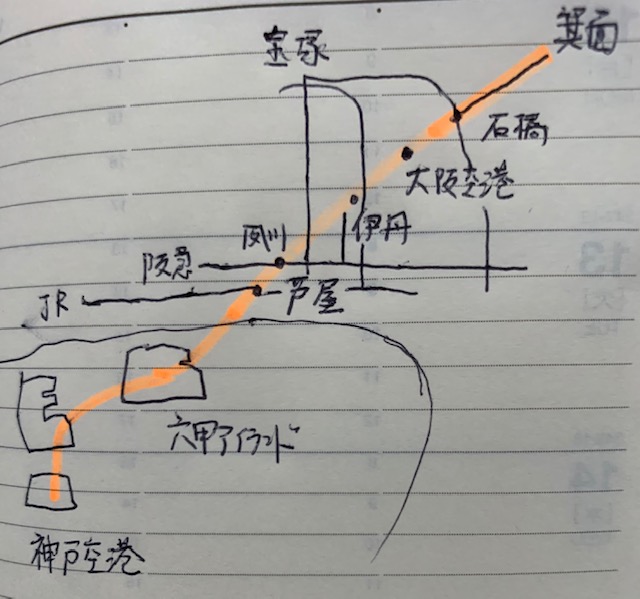 箕面
宝塚
石橋
大阪空港
伊丹
夙川
阪急
芦屋
JR
六甲アイランド
神戸空港
13
14